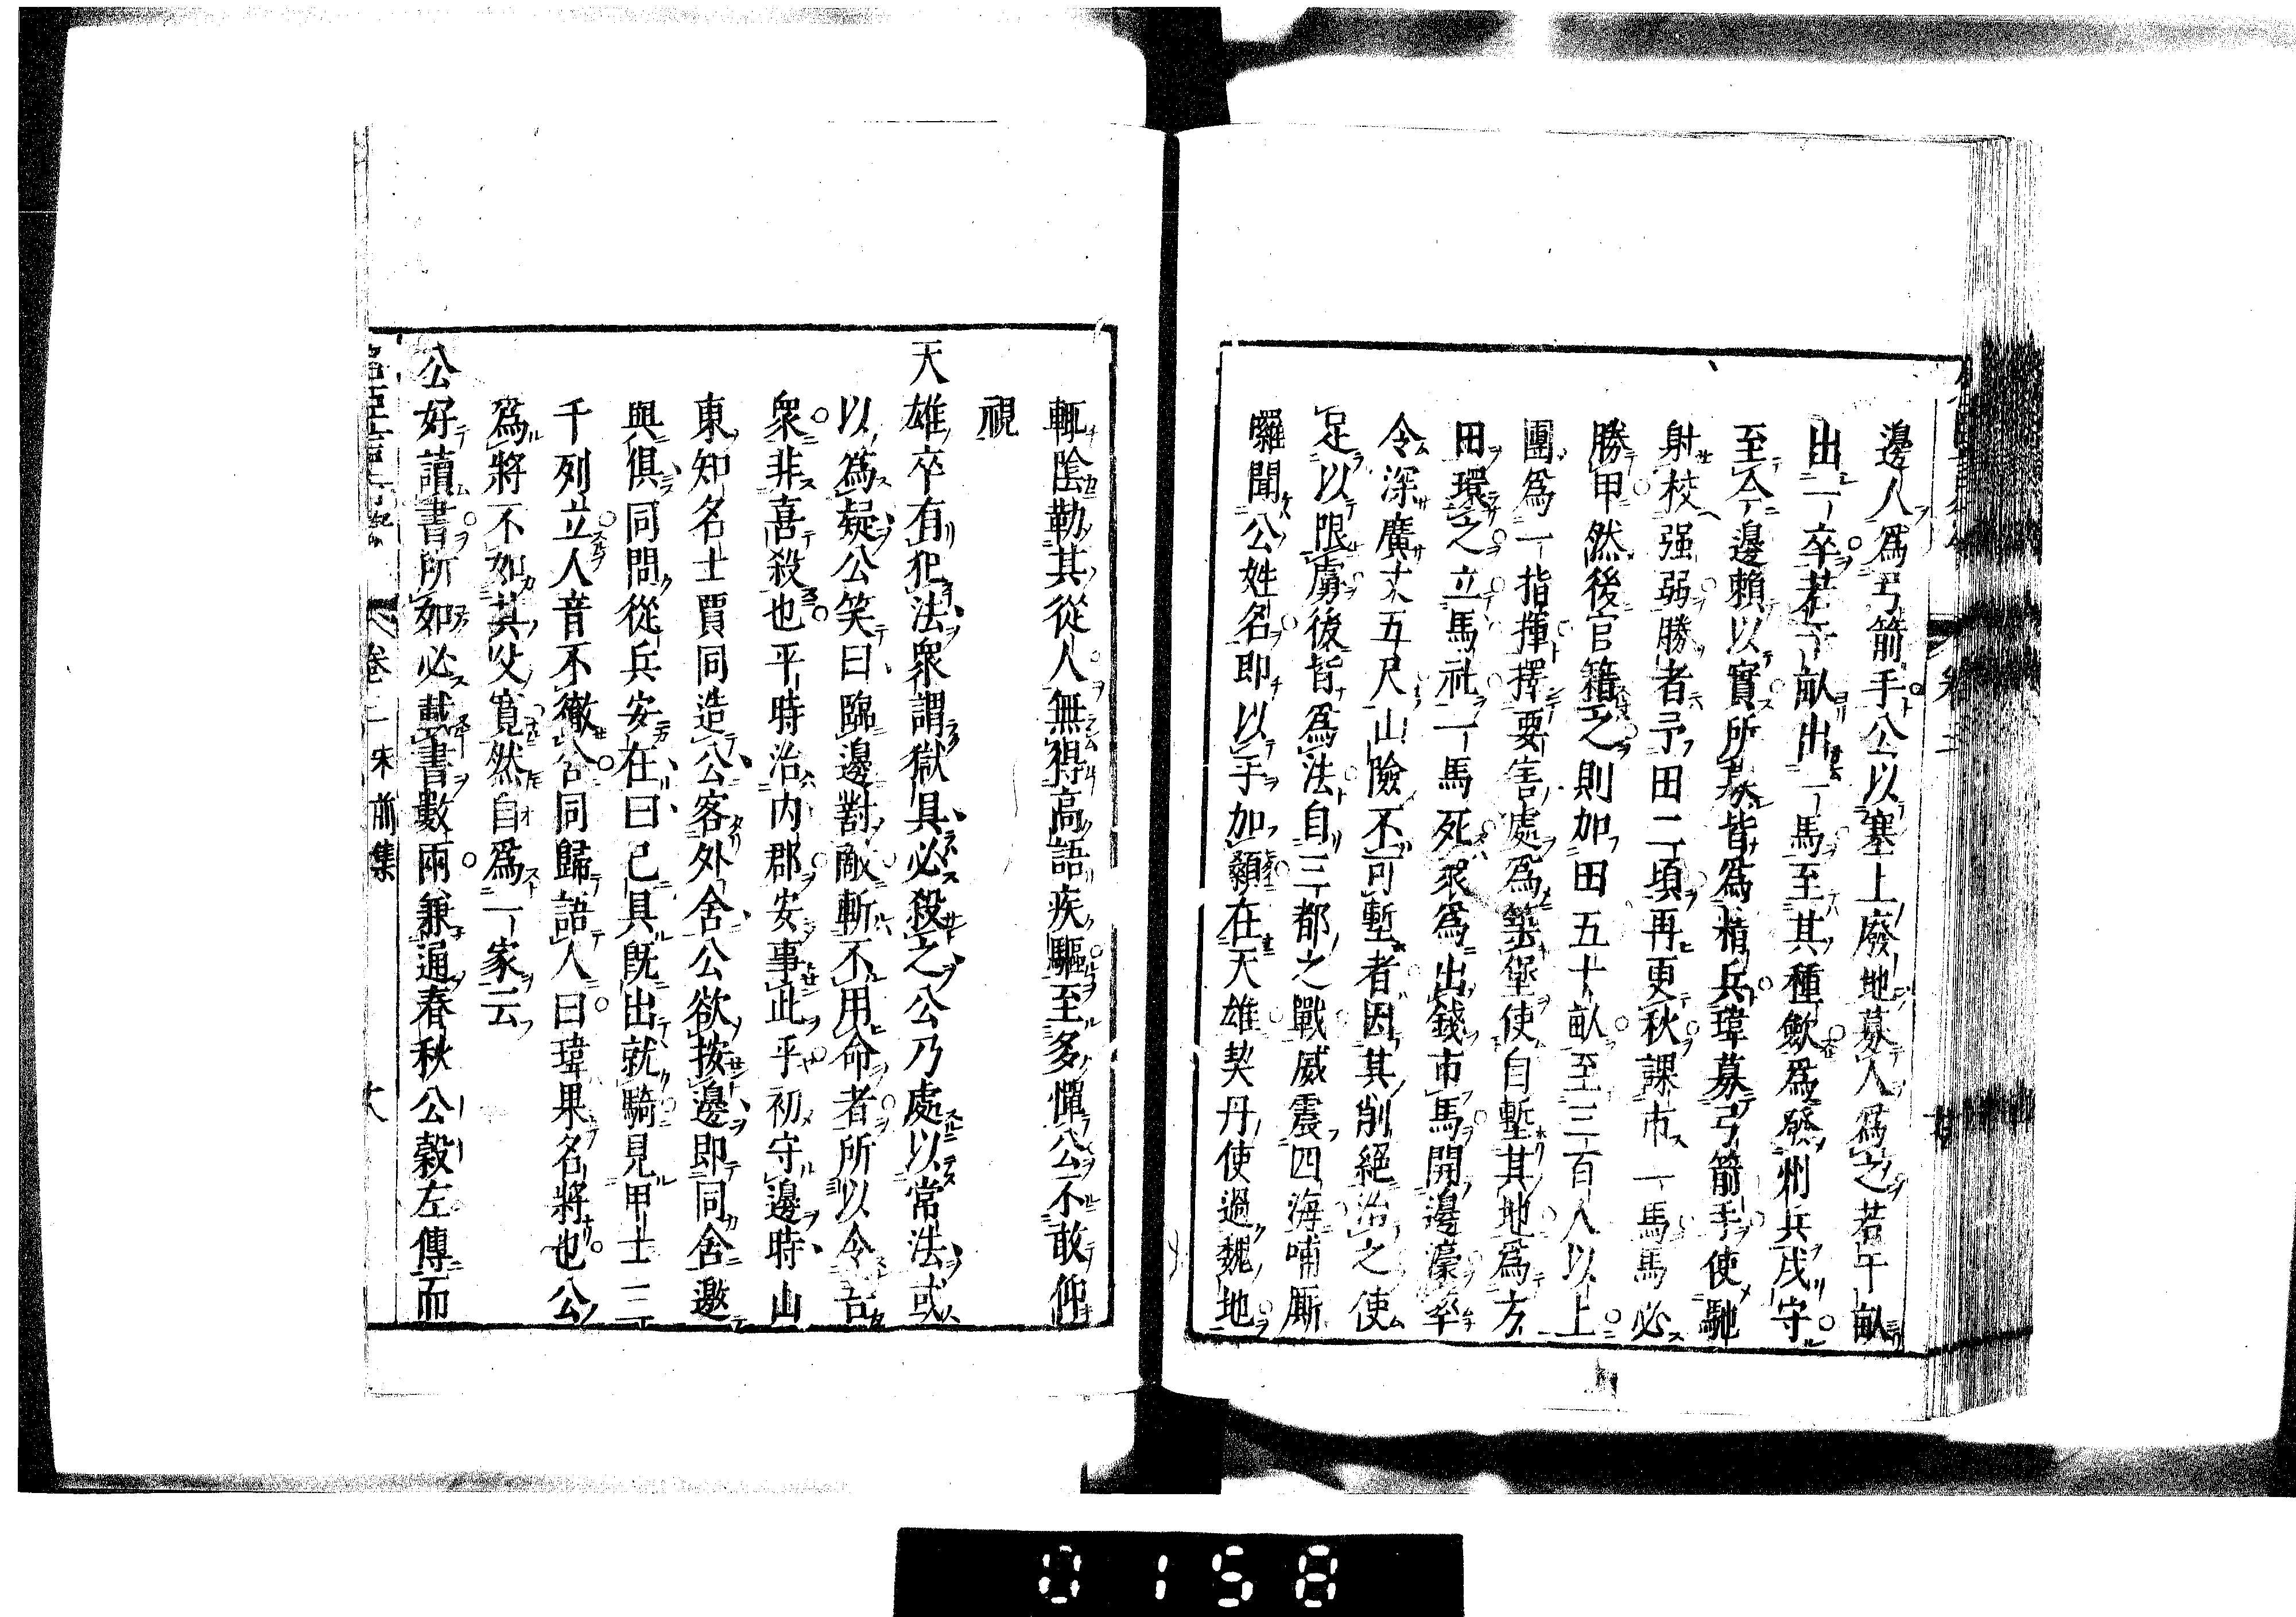 邊人爲弓箭手公以塞上廢地募人爲之若干畝
出一卒若干畝出一馬至其種斂爲發州兵戍守
至今邊賴以實所募皆爲精兵瑋募弓箭手使馳
射校强弱勝者予田二頃再更秋課市一馬馬必
勝甲然後官籍之則加田五十畝至三百人以上
團爲一指揮擇要害處爲築堡使自塹其地爲方
田環之立馬社一馬死衆爲出錢市馬開邊濠率
令深廣丈五尺山險不可塹者因其削絕治之使
足以限虜後皆爲法自三都之戰威震四海喃厮
囉聞公姓名即以手加顙在天雄契丹使過魏地
輒陰勒其從人無得高語疾驅至多憚公不敢仰
視
天雄卒有犯法衆謂獄具必殺之公乃處以常法或
以爲疑公笑曰臨邊對敵斬不用命者所以令吾
衆非喜殺也平時治內郡安事此乎初守邊時山
東知名士賈同造公客外舍公欲按邊即同舍邀
與俱同問從兵安在曰已具旣出就騎見甲士三
千列立人音不徹舍同歸語人曰瑋果名將也公
爲將不如其父寬然自爲一家云
公好讀書所如必載書數兩兼通春秋公穀左傳而
卷二 宋前集